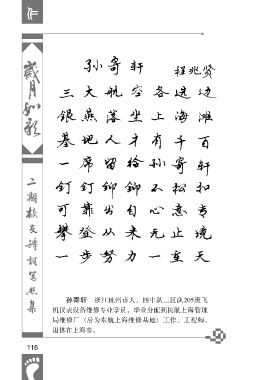 作
岁月如歌
二期校友诗词笔
集
孙寄轩
程兆贤
三大航空各选边
银燕落坐上海滩
基地人才有千百
一席留给孙寄轩
钉钉铆铆不松扣
可靠出自心意专
攀登从来无止境
一步努力一重天
孙寄轩 浙江杭州市人，四中队二区队205班飞
机仪表设备维修专业学员，毕业分配到民航上海管理
局维修厂（后为东航上海维修基地）工作。工程师。
退休在上海市。
116